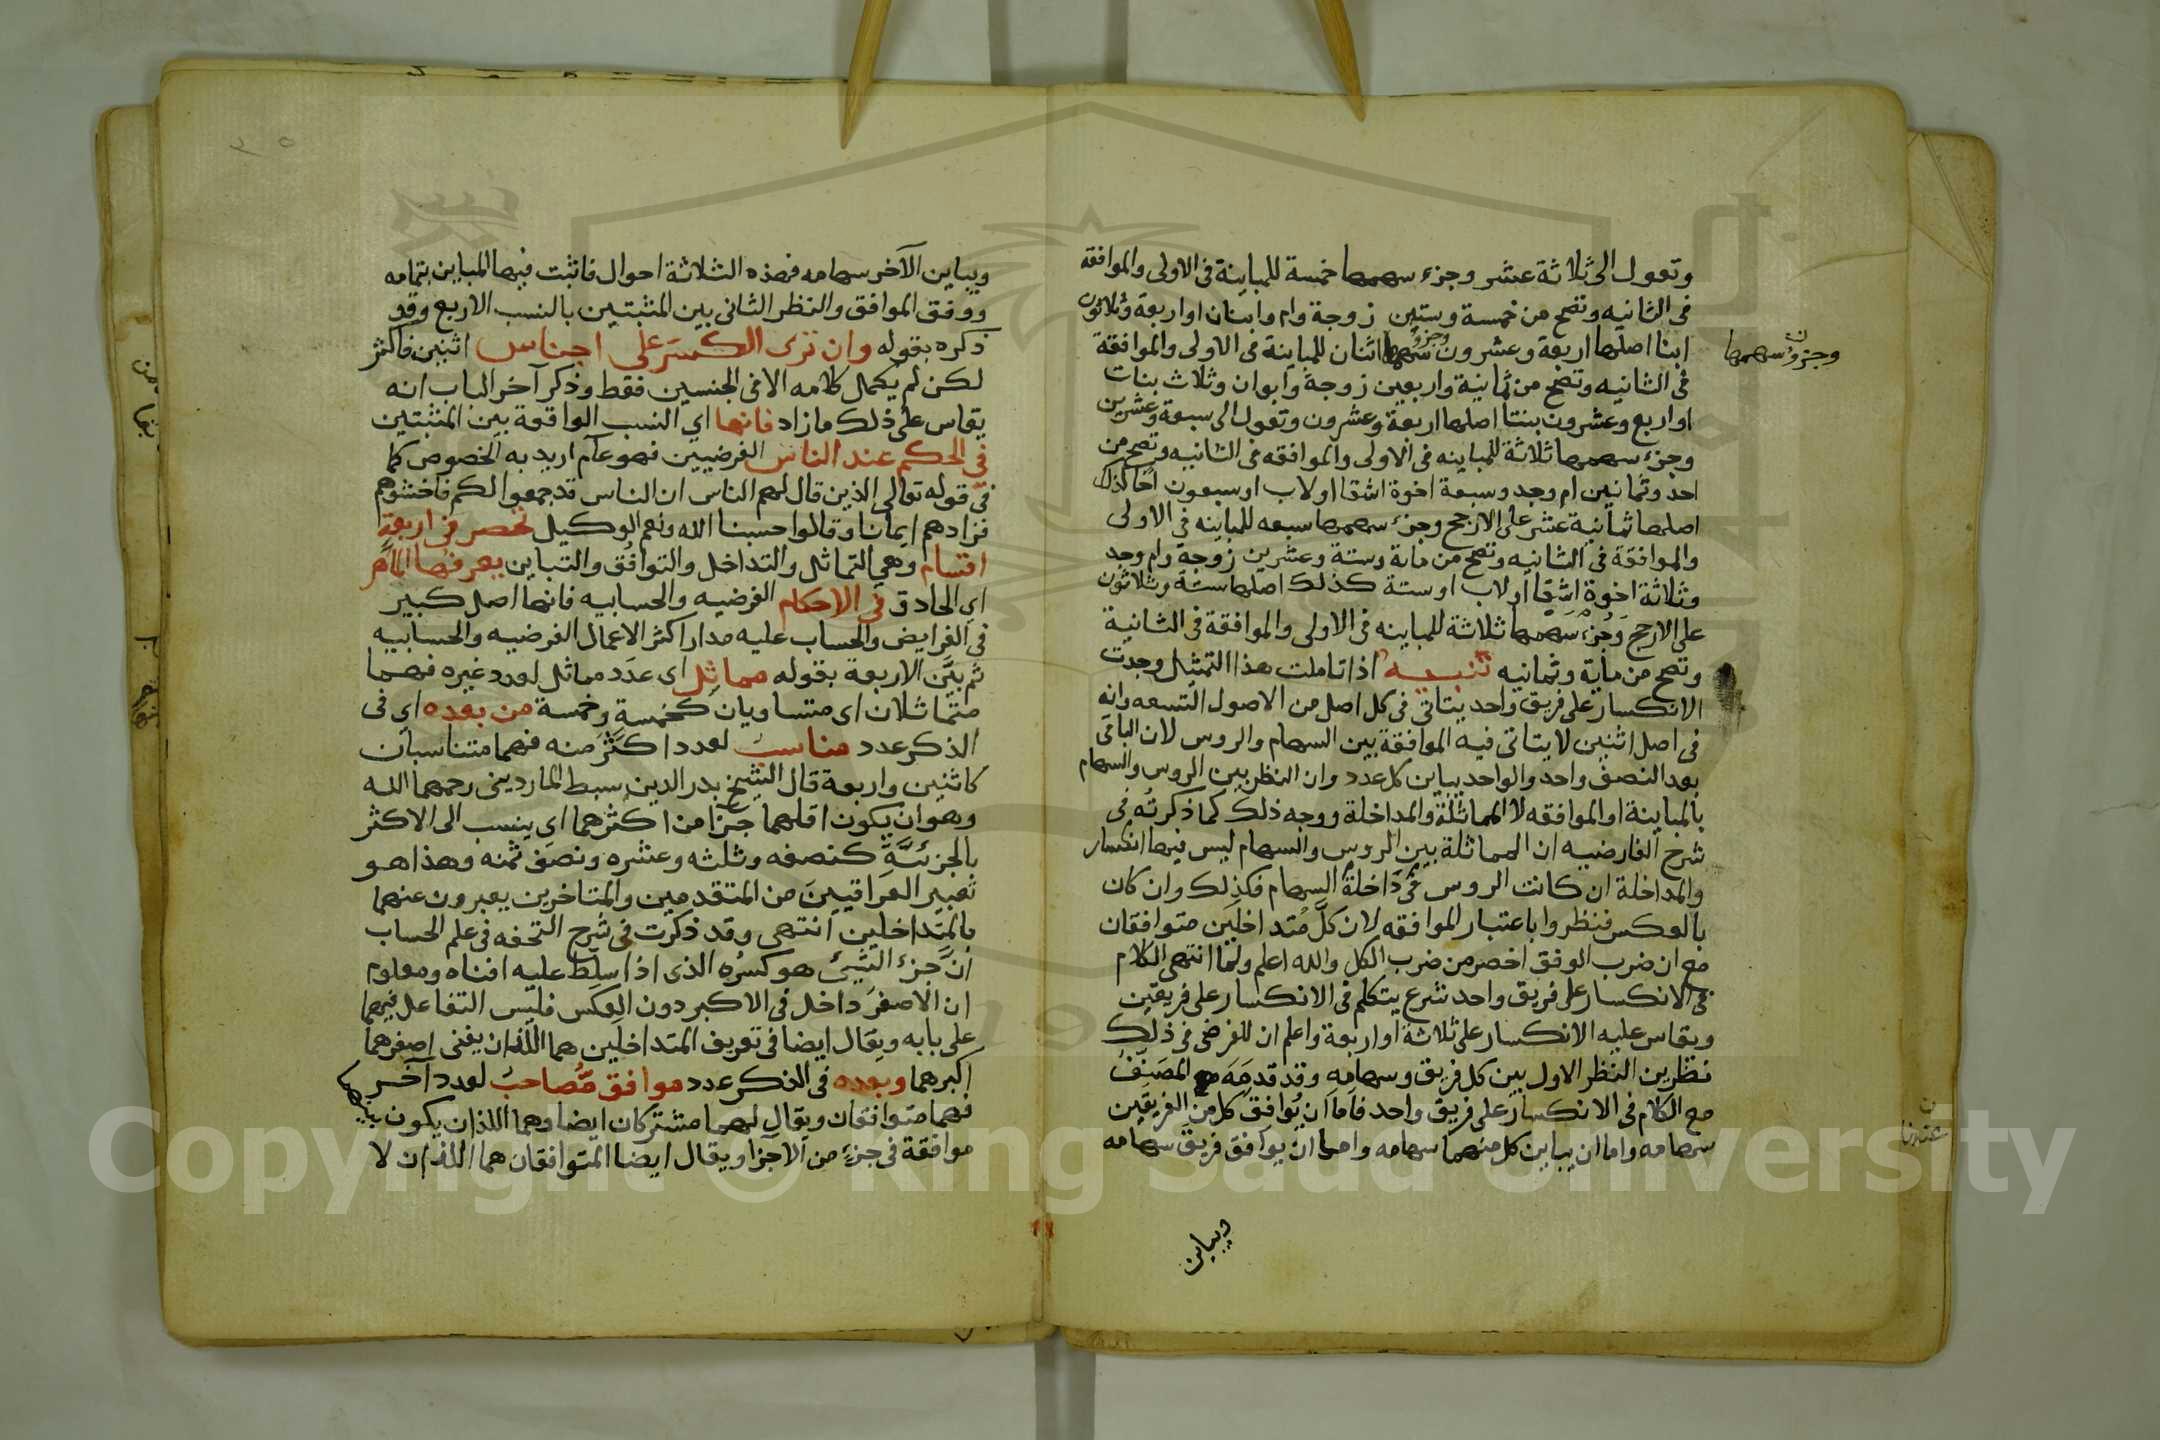 وتعول الى ثلاثة عشر وجزء سهمها خمسة للمباينة فى الاولى والموافقة
فى الثانيه وتصح من خمسة وستين زوجة وام وابنان او اربعة وثلاثون
ابنا اصلها اربعة وعشرون وجزؤ سهمها اثنان للمباينة فى الاولى والموافقة
وجزؤ سهمها
فى الثانيه وتصح من ثمانية واربعين زوجة وابوان وثلاث بنات
او اربع وعشرون بنتا اصلها اربعة وعشرون وتعول الى سبعة وعشرين
وجزء سهمها ثلاثة للمباينه فى الاولى والموافقه فى الثانيه وتصح من
احد وثمانين ام وجد وسبعة اخوة اشقا او لاب او سبعون اخا كذلك
اصلها ثمانية عشر على الارجح وجزء سهمها سبعه للمباينه فى الاولى
والموافقة فى الثانيه وتصح من ماية وستة وعشرين زوجة وام وجد
وثلاثة اخوة اشقا او لاب او ستة كذلك اصلها ستة وثلاثون
على الارجح وجزء سهمها ثلاثة للمباينه فى الاولى والموافقة فى الثانية
وتصح من ماية وثمانيه تنبيه اذا تاملت هذا التمثيل وجدت
الانكسار على فريق واحد يتاتى فى كل اصل من الاصول التسعه وانه
فى اصل اثنين لا يتاتى فيه الموافقة بين السهام والروس لان الباقى
بعد النصف واحد والواحد يباين كل عدد وان النظر بين الروس والسهام
بالمباينة او الموافقه لا المماثلة والمداخلة ووجه ذلك كما ذكرته فى
شرح الفارضيه ان المماثلة بين الروس والسهام ليس فيها انكسار
والمداخلة ان كانت الروس داخلة السهام فكذلك وان كان
بالعكس فنظروا باعتبار الموافقه لان كل متداخلين متوافقان
مع ان ضرب الوفق اخصر من ضرب الكل والله اعلم ولما انتهى الكلام
فى الانكسار على فريق واحد شرع يتكلم فى الانكسار على فريقين
ويقاس عليه الانكسار على ثلاثة او اربعة واعلم ان للفرضى فى ذلك
نظرين النظر الاول بين كل فريق وسهامه وقد قدمه المصنف
مع الكلام فى الانكسار على فريق واحد فاما ان يوافق كل من الفريقين
سهامه واما ان يباين كل منهما سهامه واما ان يوافق فريق سهامه
ويباين
ويباين الآخر سهامه فهذه الثلاثة احوال فاثبت فيها المباين بتمامه
ووفق الموافق والنظر الثانى بين المثبتين بالنسب الاربع وقد
ذكره بقوله وان ترى الكسر على اجناس اثنين فاكثر
لكن لم يكمل كلامه الا فى الجنسين فقط وذكر آخر الباب انه
يقاس على ذلك ما زاد فانها اي النسب الواقعة بين المثبتين
فى الحكم عند الناس الفرضيين فهو عام اريد به الخصوص كما
فى قوله تعالى الذين قال لهم الناس ان الناس قد جمعوا لكم فاخشوهم
فزادهم ايمانا وقالوا حسبنا الله ونعم الوكيل تحصر فى اربعة
اقسام وهي التماثل والتداخل والتوافق والتباين يعرفها الماهر
اي الحاذق فى الاحكام الفرضيه والحسابيه فانها اصل كبير
فى الفرايض والحساب عليه مدار اكثر الاعمال الفرضيه والحسابيه
ثم بين الاربعة بقوله مماثل اى عدد مماثل لعدد غيره فهما
متماثلان اى متساويان كخمسة وخمسة من بعده اي فى
الذكر عدد مناسب لعدد اكثر منه فهما متناسبان
كاثنين واربعة قال الشيخ بدر الدين سبط الماردينى رحمهما الله
وهو ان يكون اقلهما جزا من اكثرهما اي ينسب الى الاكثر
بالجزئية كنصفه وثلثه وعشره ونصف ثمنه وهذا هو
تعبير العراقيين من المتقدمين والمتاخرين يعبرون عنهما
بالمتداخلين انتهى وقد ذكرت فى شرح التحفه فى علم الحساب
ان جزء الشيئ هو كسره الذى اذا سلط عليه افناه ومعلوم
ان الاصغر داخل فى الاكبر دون العكس فليس التفاعل فيهما
على بابه ويقال ايضا فى تعريف المتداخلين هما اللذان يفنى اصغرهما
اكبرهما وبعده فى الذكر عدد موافق مصاحب لعدد آخر
فهما متوافقان ويقال لهما مشتركان ايضا وهما اللذان يكون بينهما
موافقة فى جزء من الاجزا ويقال ايضا المتوافقان هما اللذان لا
Copyright © King Saud University